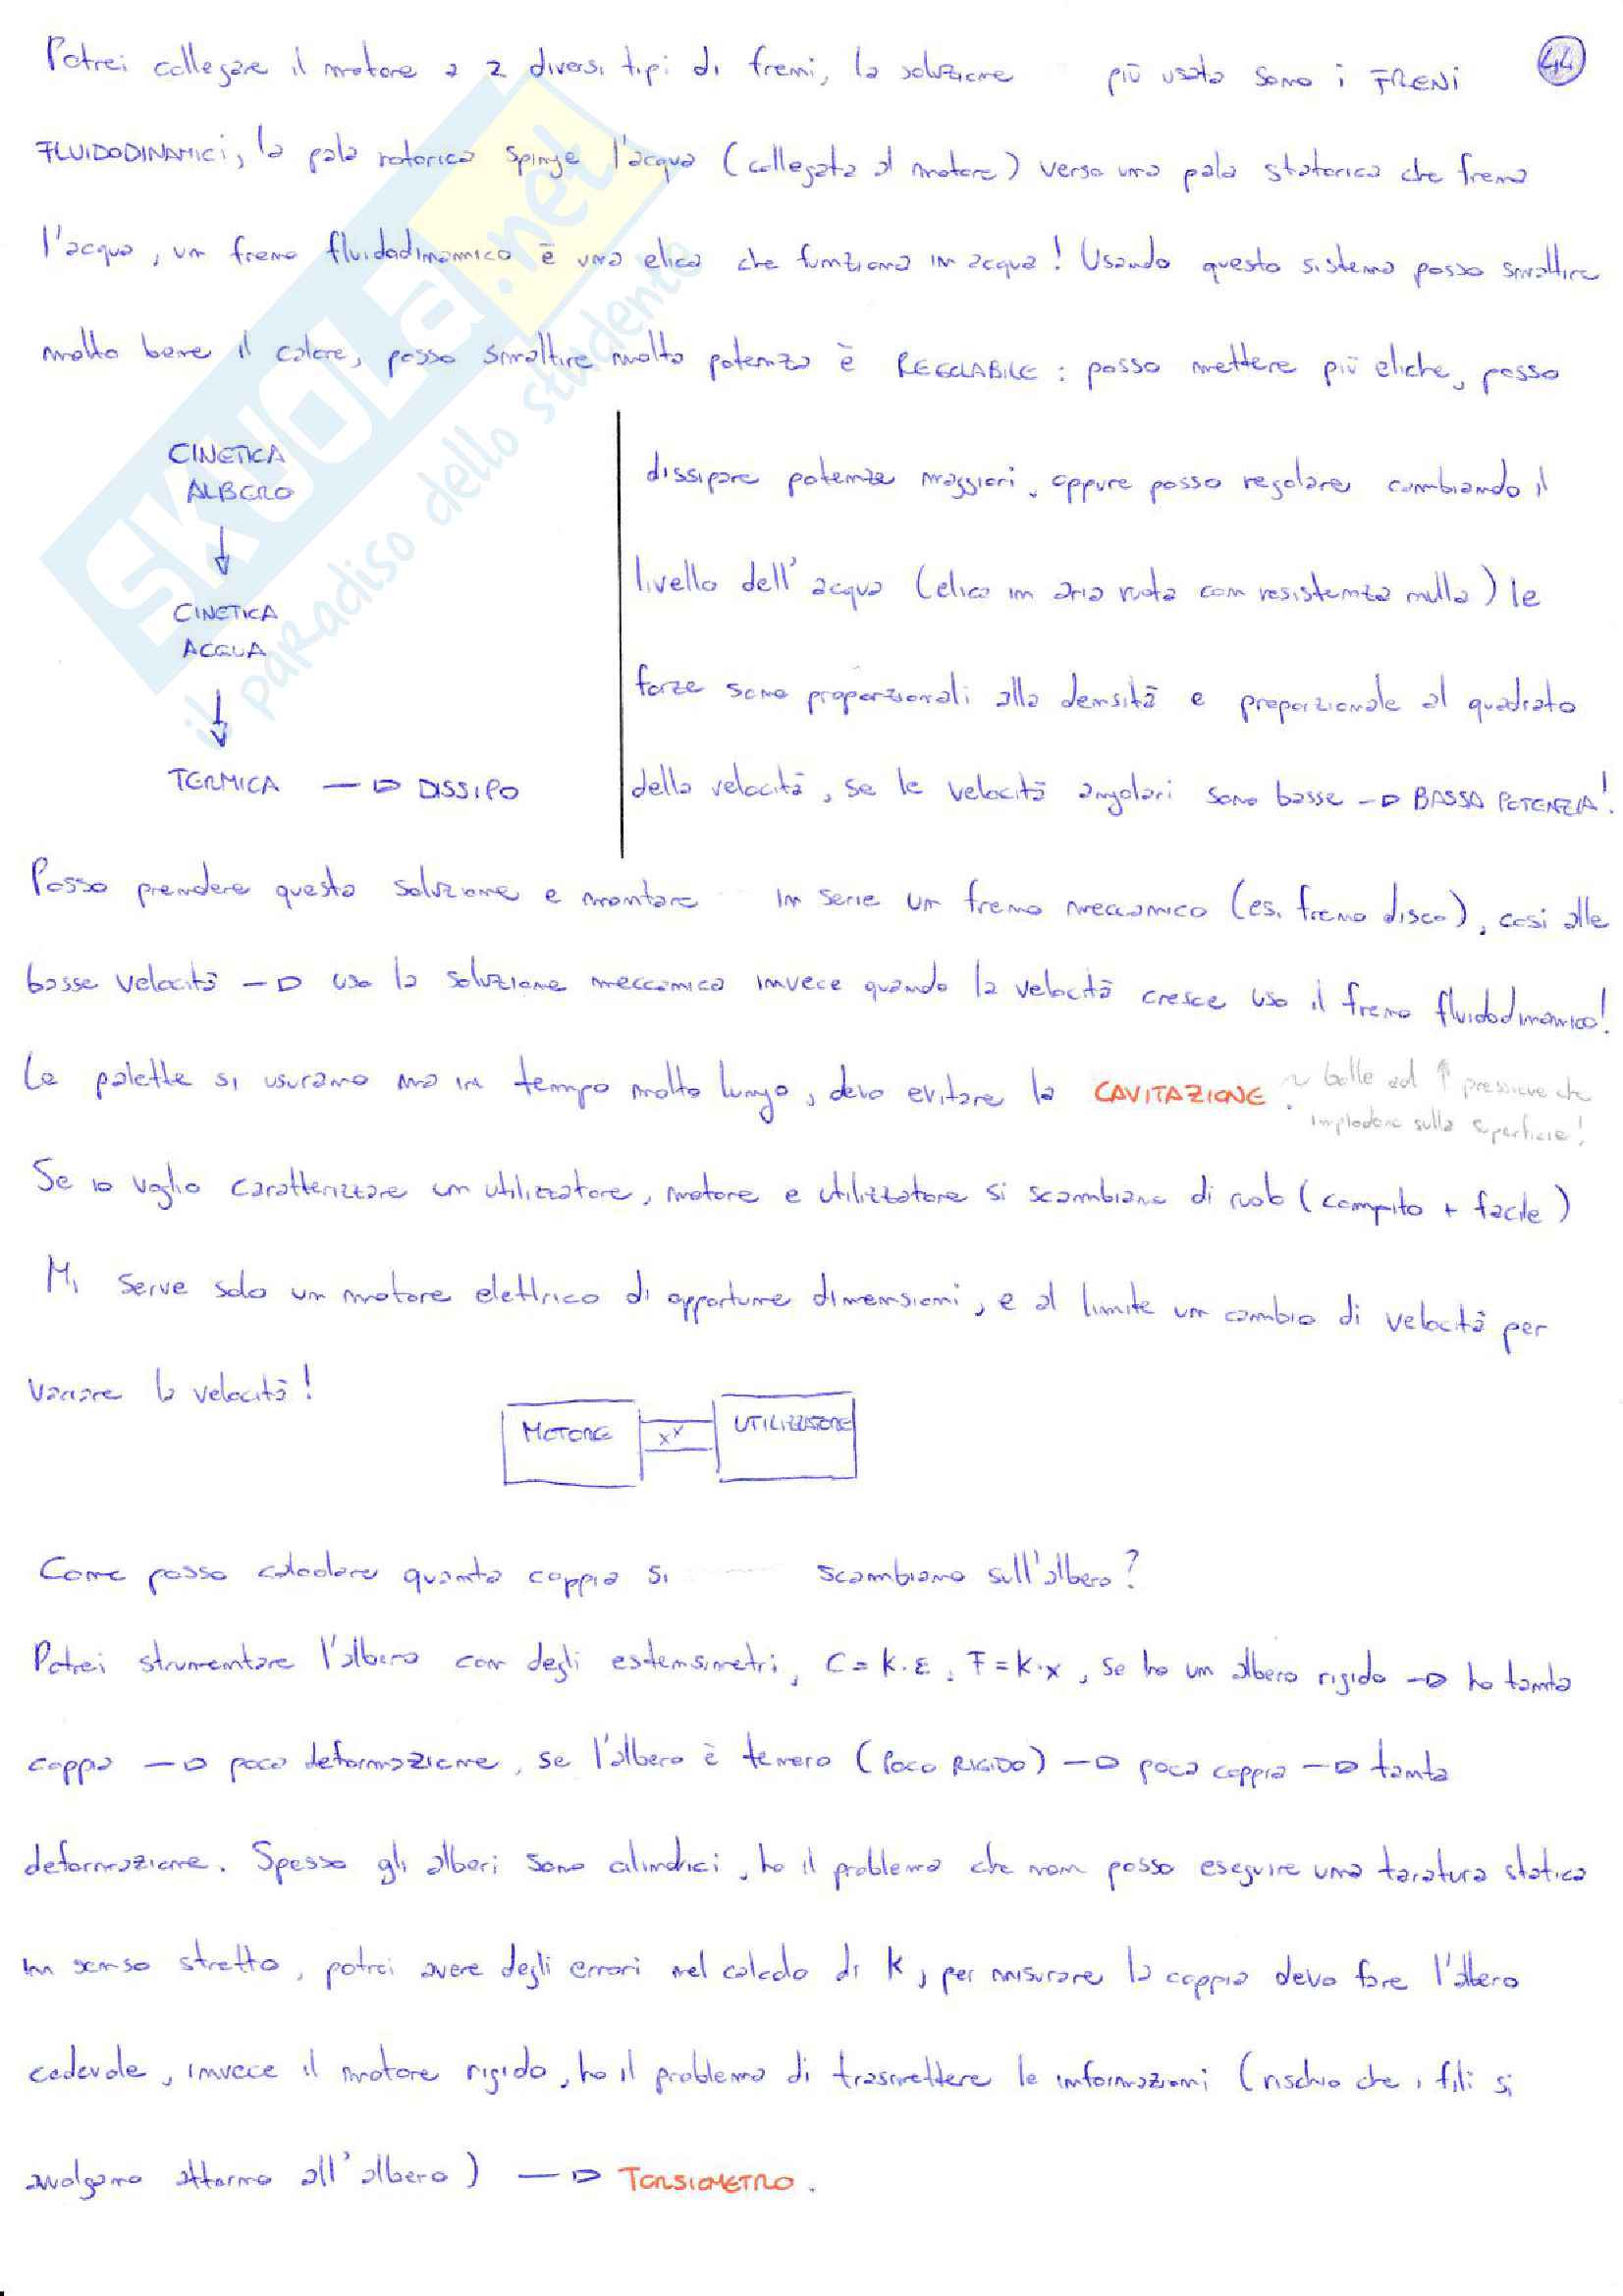 44
Potrei collegare il motore a 2 diversi tipi di freni, la soluzione più usata sono i FRENI
FLUIDODINAMICI, la pala rotorica spinge l'acqua (collegata al motore) verso una pala statorica che frena
l'acqua, un freno fluidodinamico è una elica che funziona in acqua! Usando questo sistema posso smaltire
molto bene il calore, posso smaltire molta potenza è REGOLABILE: posso mettere più eliche, posso
dissipare potenze maggiori, oppure posso regolare cambiando il
livello dell'acqua (elica in aria ruota con resistenza nulla) le
forze sono proporzionali alla densità e proporzionale al quadrato
della velocità, se le velocità angolari sono basse → BASSA POTENZA!
CINETICA
ALBERO
↓
CINETICA
ACQUA
↓
TERMICA → DISSIPO
Posso prendere questa soluzione e montare in serie un freno meccanico (es. freno disco), così alle
basse velocità → uso la soluzione meccanica invece quando la velocità cresce uso il freno fluidodinamico!
Le palette si usurano ma in tempo molto lungo, devo evitare la CAVITAZIONE. ~ bolle ad ↑ pressione che
implodono sulla superficie!
Se io voglio caratterizzare un utilizzatore, motore e utilizzatore si scambiano di ruolo (compito + facile)
Mi serve solo un motore elettrico di opportune dimensioni, e al limite un cambio di velocità per
variare la velocità!
MOTORE xx UTILIZZATORE
Come posso calcolare quanta coppia si scambiano sull'albero?
Potrei strumentare l'albero con degli estensimetri, C = K·ε, F = K·x, se ho un albero rigido → ho tanta
coppia → poca deformazione, se l'albero è tenero (POCO RIGIDO) → poca coppia → tanta
deformazione. Spesso gli alberi sono cilindrici, ho il problema che non posso eseguire una taratura statica
in senso stretto, potrei avere degli errori nel calcolo di K, per misurare la coppia devo fare l'albero
cedevole, invece il motore rigido, ho il problema di trasmettere le informazioni (rischio che i fili si
avvolgano attorno all'albero) → TORSIOMETRO.
SKUOLA.net
il paradiso dello studente